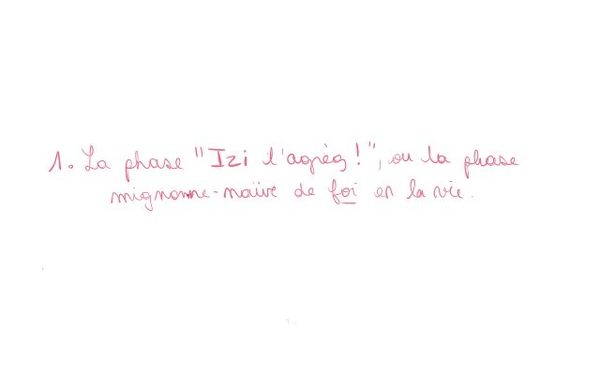 1. La phase "Izi l'agrég !", ou la phase
mignonne-naïve de foi en la vie.